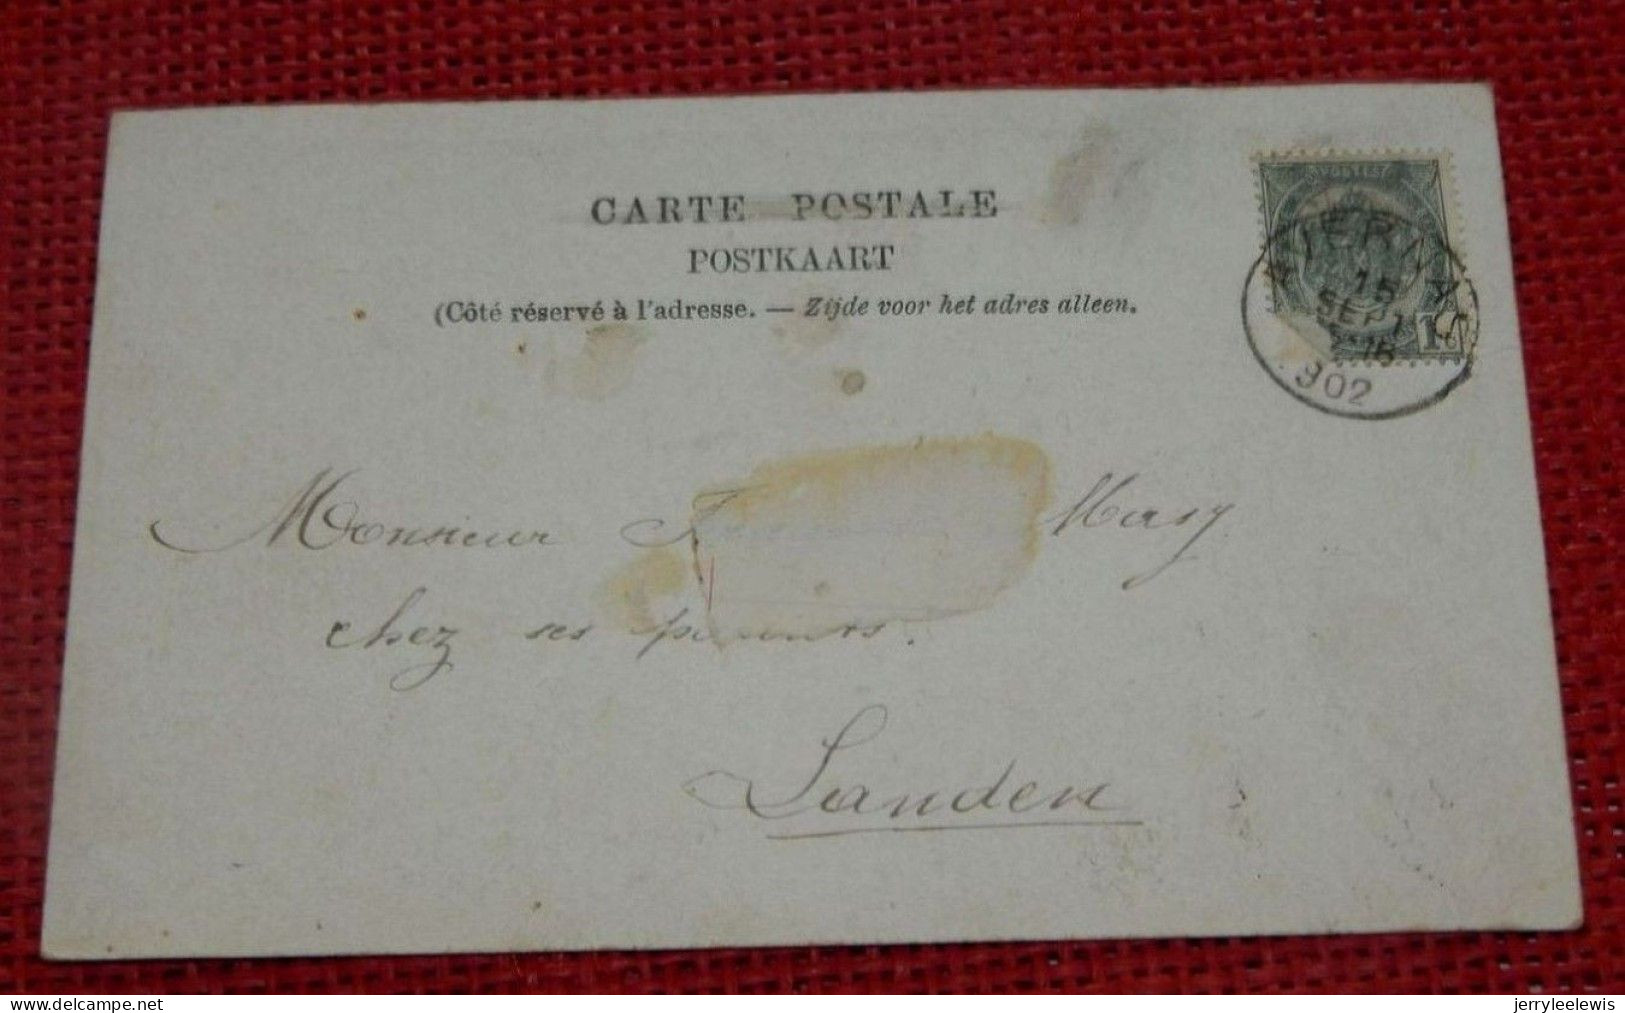 CARTE POSTALE
POSTKAART
(Côté réservé à l'adresse. — Zijde voor het adres alleen.
POSTES
15
SEPT
902
1c
Monsieur
chez ses parents.
Landen
delcampe.net
jerryleelewis